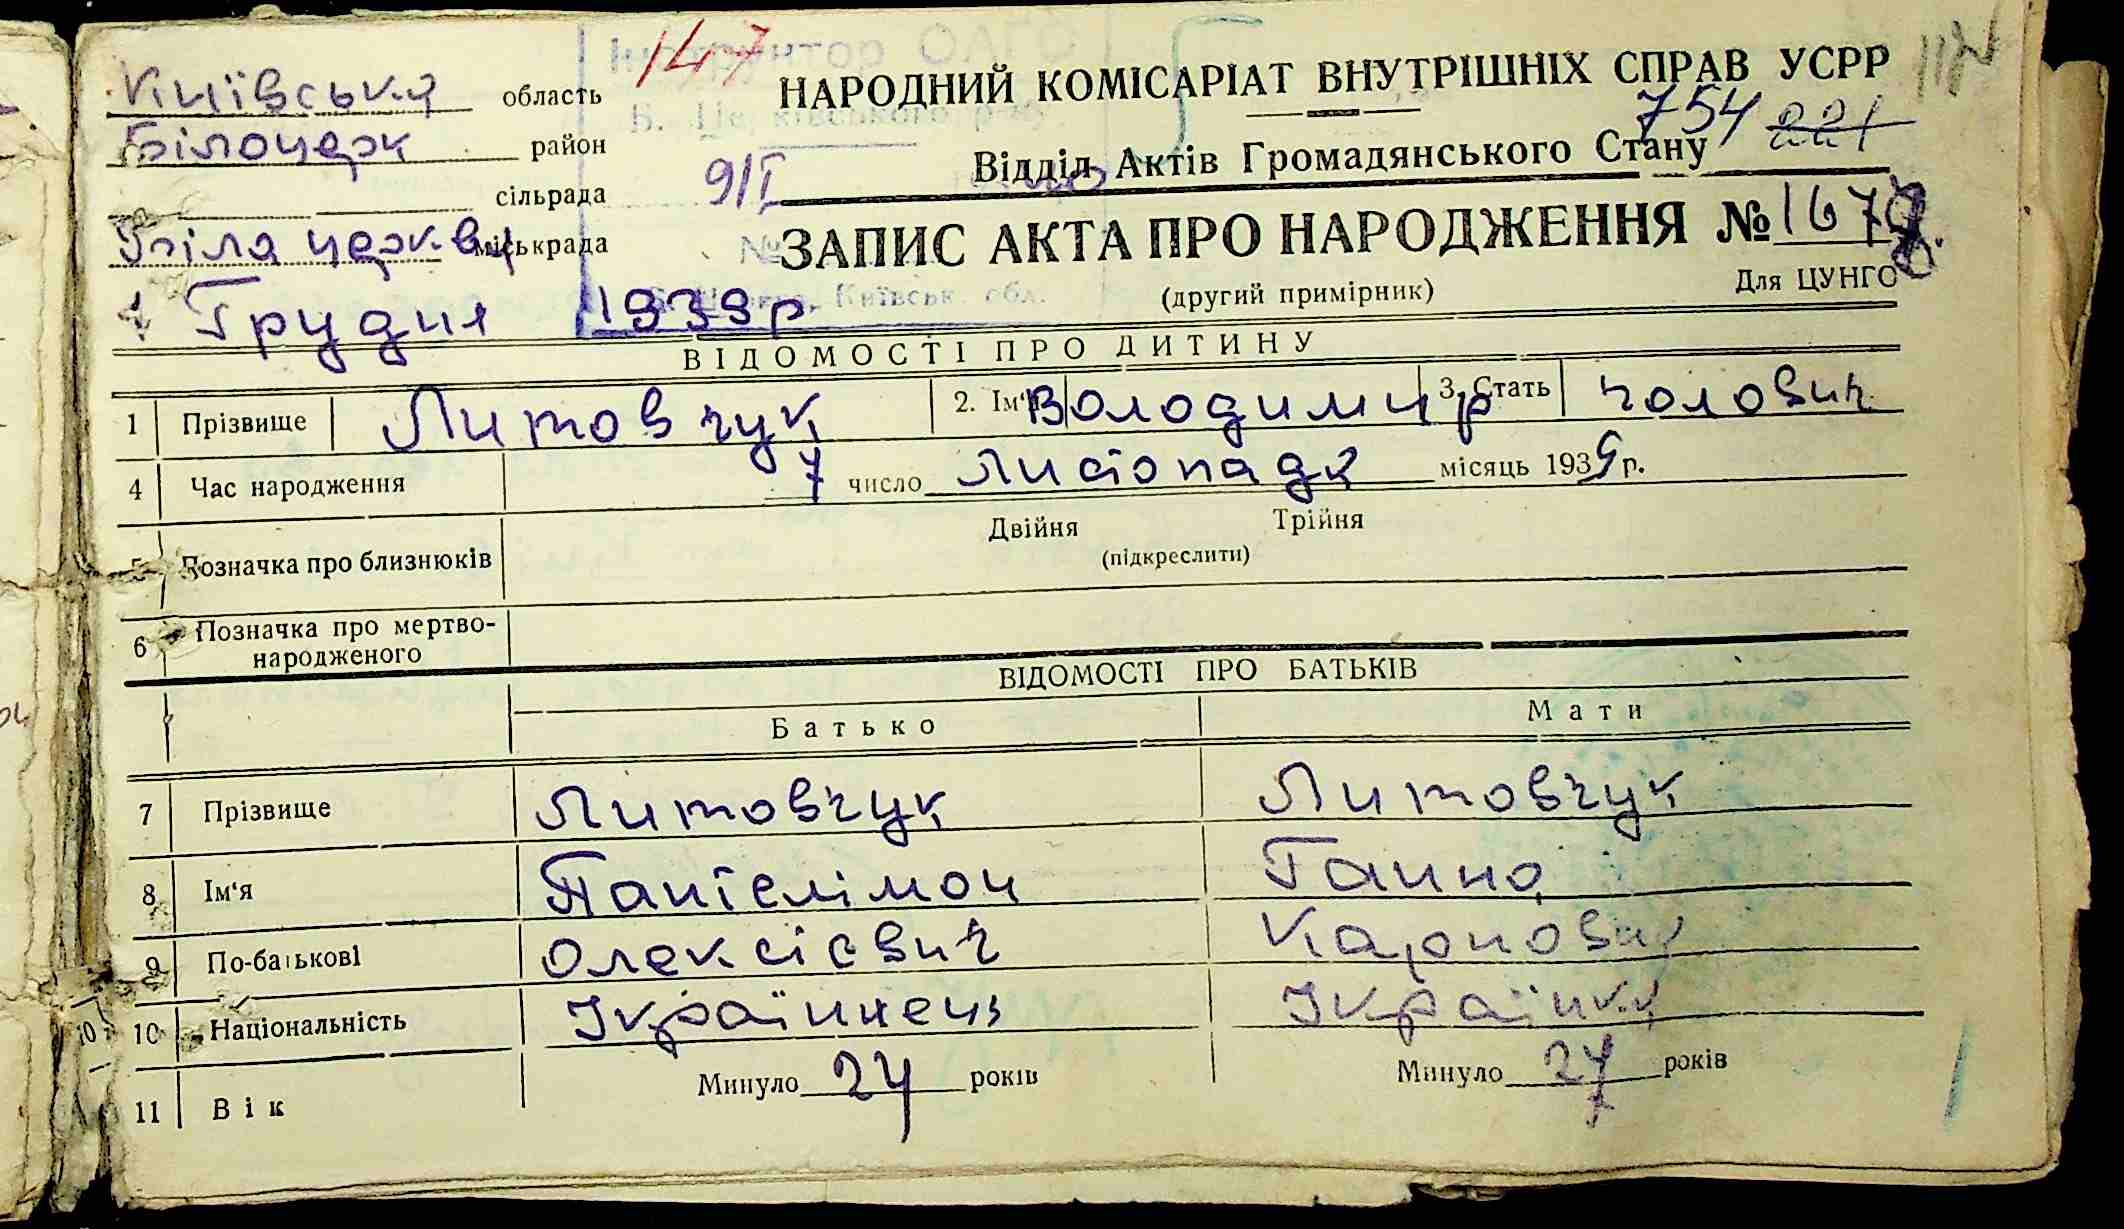 Київська область
147
НАРОДНИЙ КОМІСАРІАТ ВНУТРІШНІХ СПРАВ УСРР
Білоцерк район
754 221
9/I
Відділ Актів Громадянського Стану
сільрада
Біла церква міськрада
ЗАПИС АКТА ПРО НАРОДЖЕННЯ №
(другий примірник)
Для ЦУНГО
Грудня 1939 р.
ВІДОМОСТІ ПРО ДИТИНУ
1 Прізвище Литовчук 2. Ім'я Володимир 3. Стать чолович
4 Час народження 7 число листопада місяць 1939 р.
Двійня Трійня
5 Позначка про близнюків (підкреслити)
6 Позначка про мертво-
народженого
ВІДОМОСТІ ПРО БАТЬКІВ
Батько Мати
7 Прізвище Литовчук Литовчук
8 Ім'я Пантелімон Ганна
9 По-батькові Олексієвич Карповн
10 Національність Українець Українка
11 Вік Минуло 24 років Минуло років